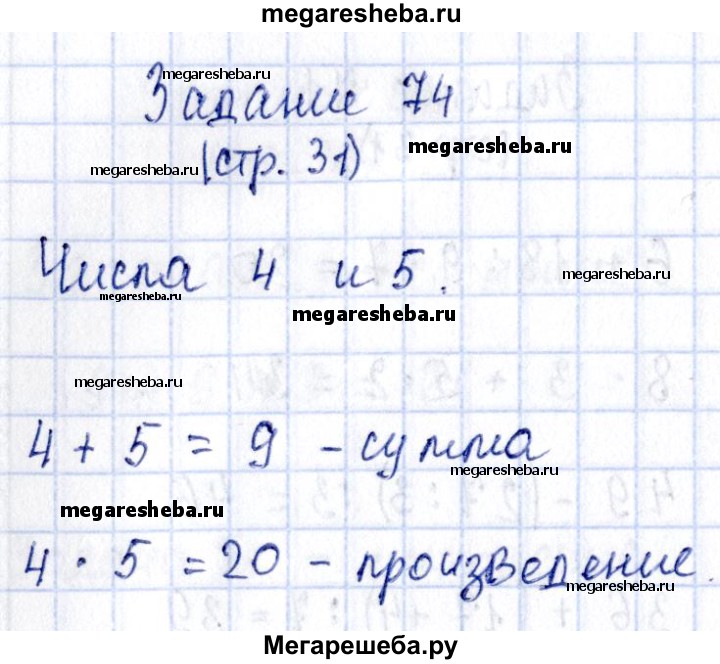 megaresheba.ru
megaresheba.ru
Задание 74
megaresheba.ru
megaresheba.ru
(стр. 31)
Числа 4 и 5.
megaresheba.ru
megaresheba.ru
megaresheba.ru
megaresheba.ru
4 + 5 = 9 - сумма
megaresheba.ru
megaresheba.ru
4 · 5 = 20 - произведение.
megaresheba.ru
Мегарешеба.ру